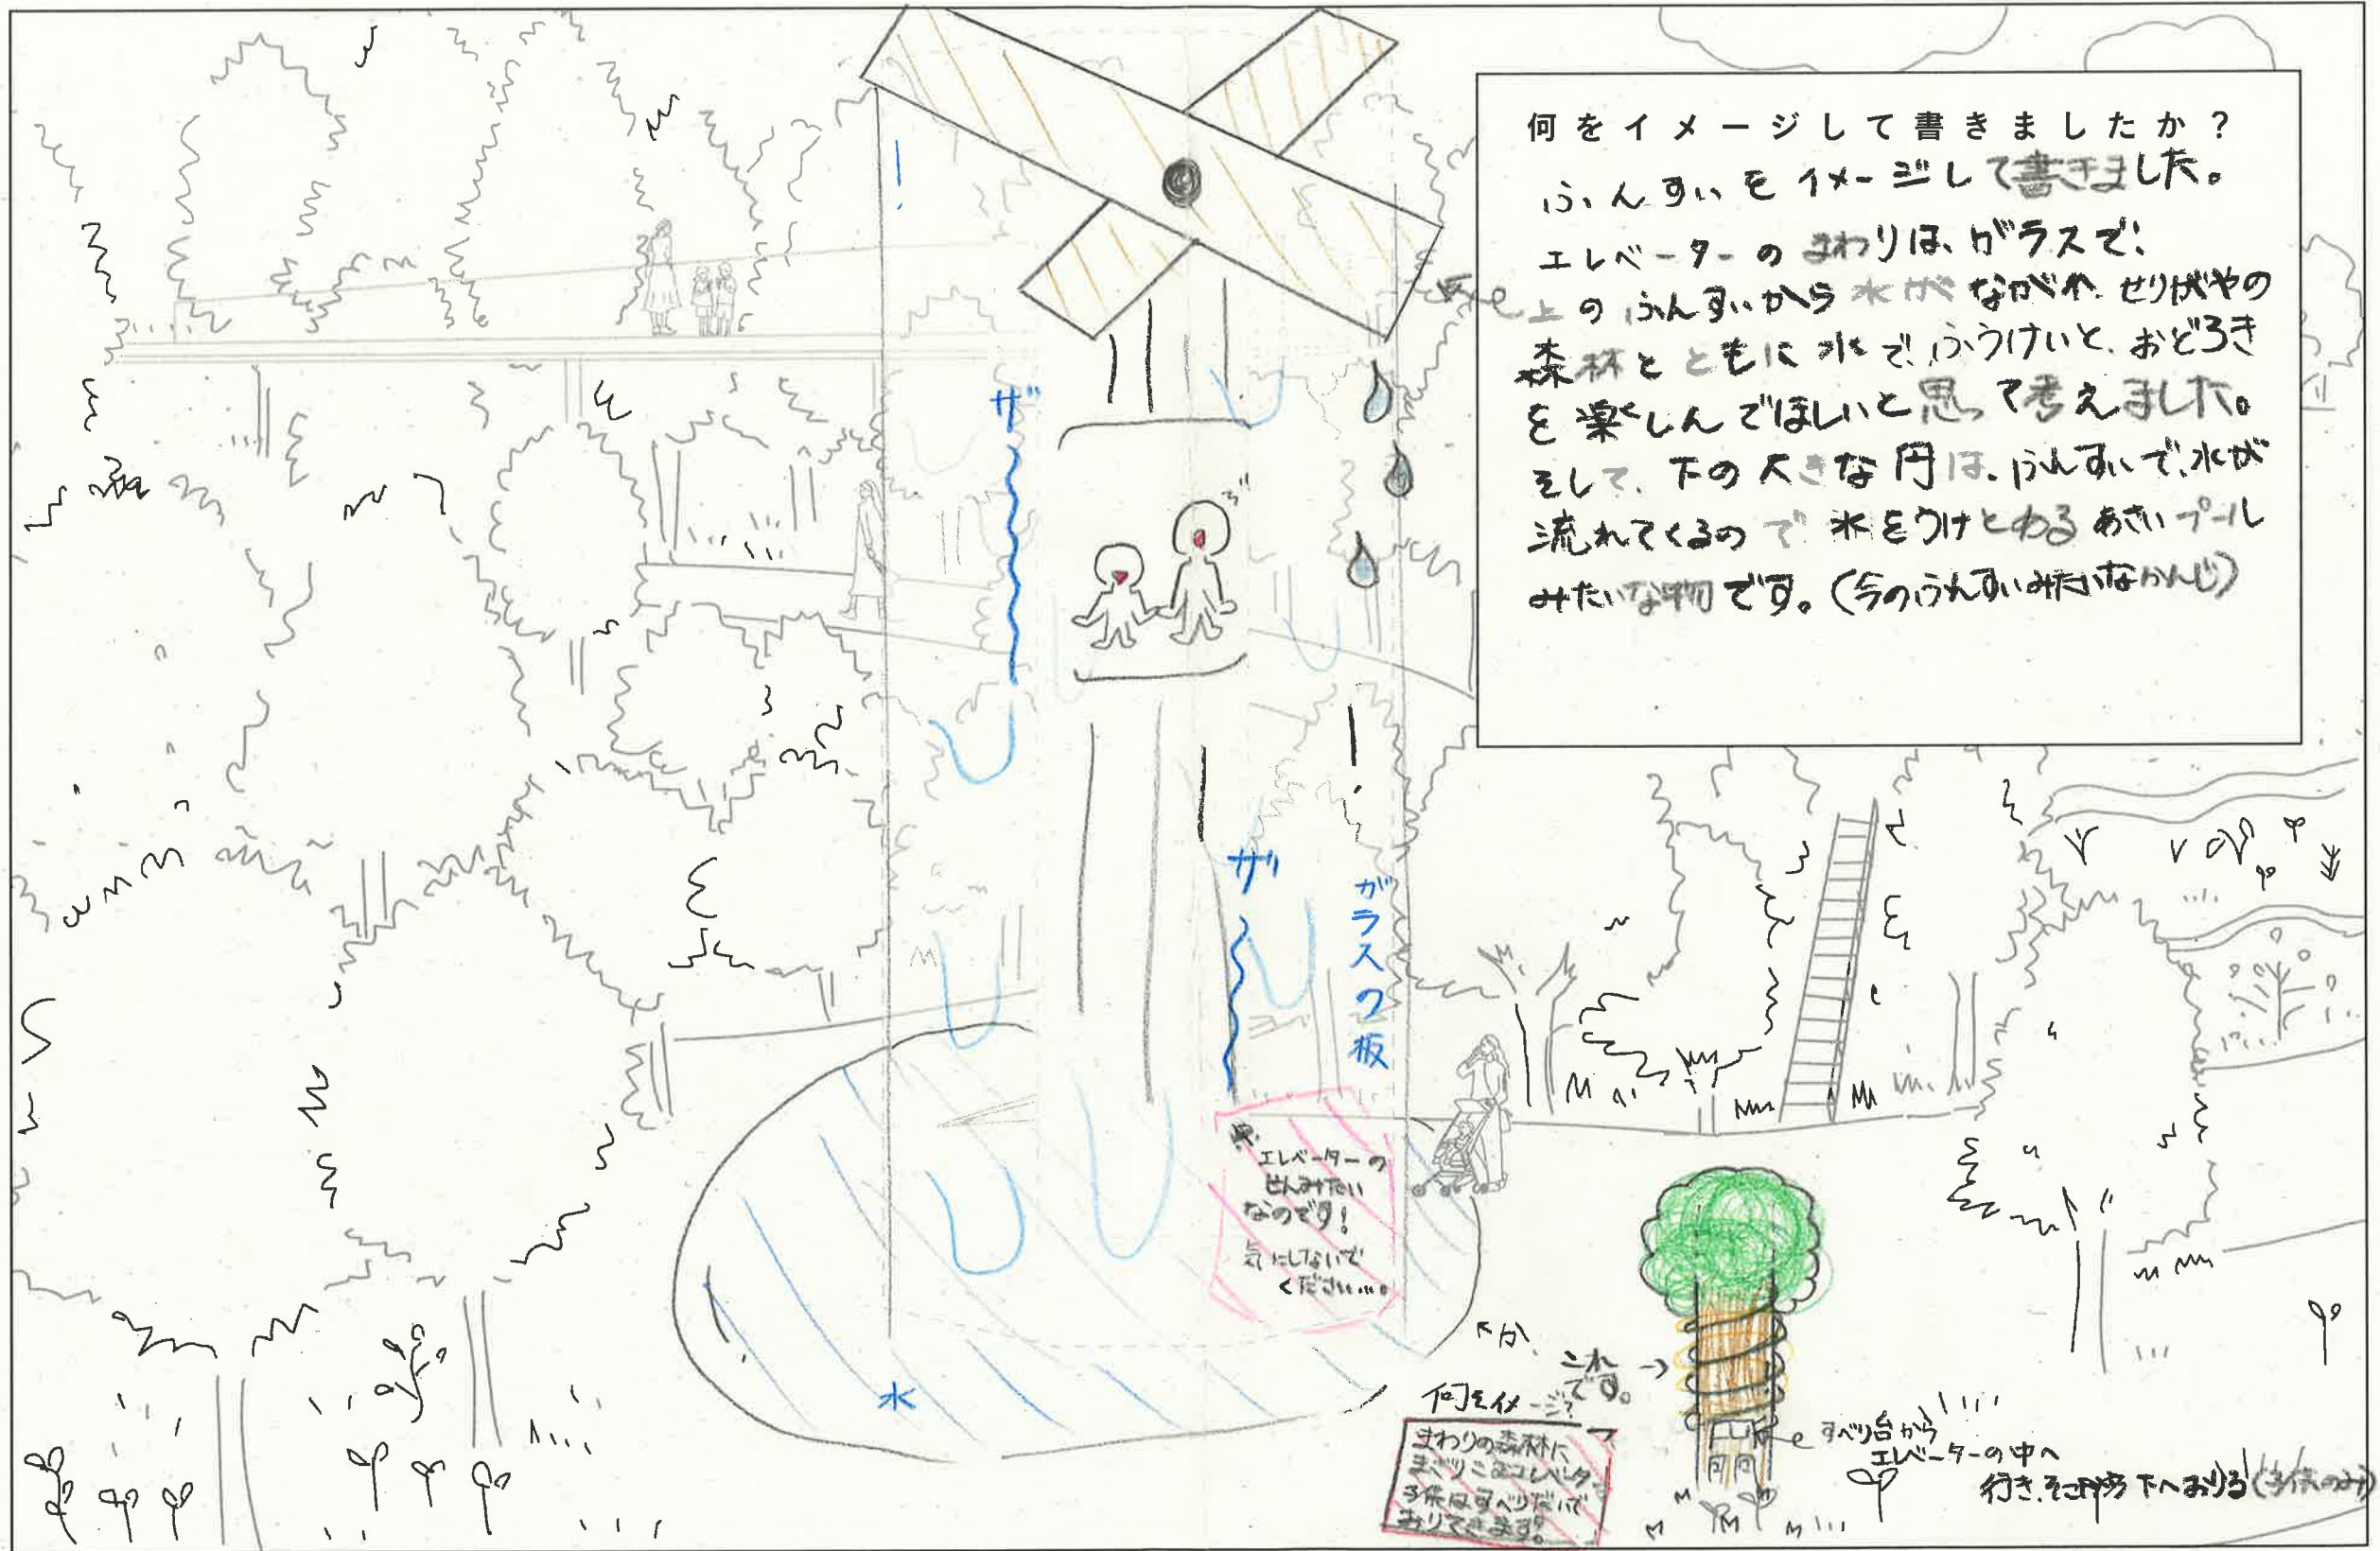 何をイメージして書きましたか？
ふんすいをイメージして書きました。
エレベーターのまわりは、ガラスで、
上のふんすいから水がながれ、せりばやの
森林とともに水で、ふうけいと、おどろき
を楽しんでほしいと思って考えました。
そして、下の大きな円は、ふんすいで、水が
流れてくるので水をうけとめるあさいプール
みたいな物です。（今のふんすいみたいなかんじ）
ザ
ザ
ガラスの板
エレベーターの
せんみたい
なのです！
気にしないで
ください…。
水
か、
これ
です。
何をイメージ？
まわりの森林に
まぎりこむエレベーター
子供はすべりだいで
おりてきます。
すべり台から
エレベーターの中へ
行き、そこから下へおりる（子供のみ）